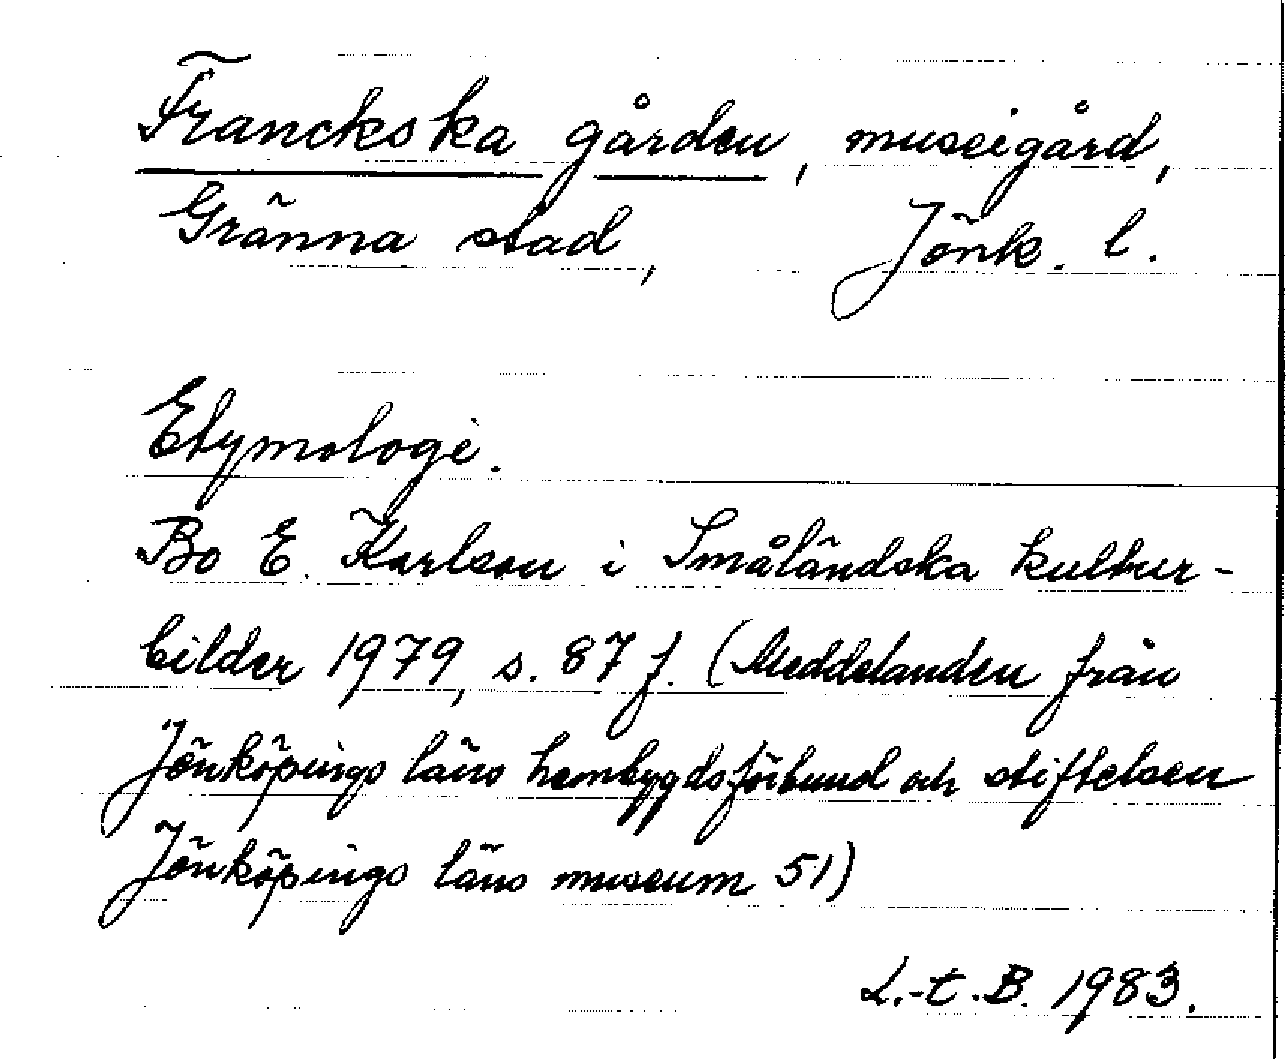 Franckska gården, museigård,
Gränna stad, Jönk. l.
Etymologi.
Bo E. Karlson i Småländska kultur-
bilder 1979, s. 87 f. (Meddelanden från
Jönköpings läns hembygdsförbund och stiftelsen
Jönköpings läns museum 51)
L.-t. B. 1983.